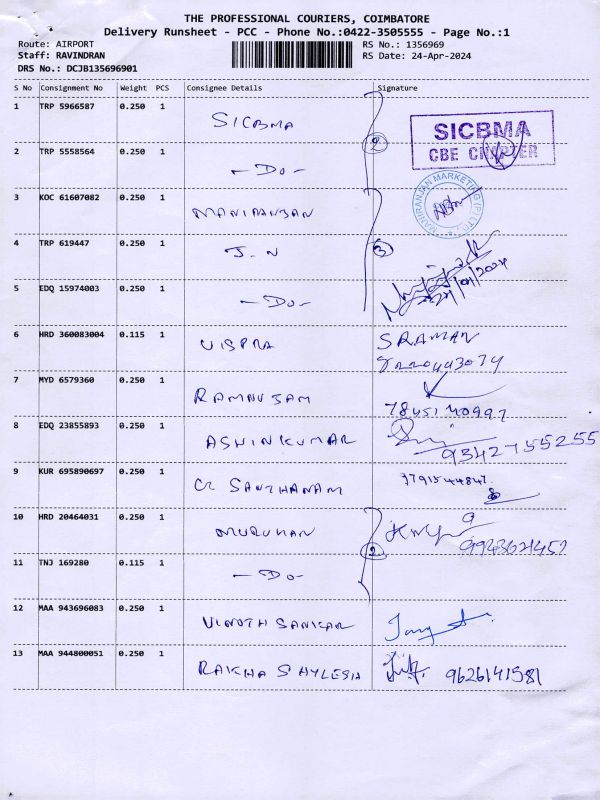 THE PROFESSIONAL COURIERS, COIMBATORE
Delivery Runsheet - PCC - Phone No.:0422-3505555 - Page No.:1
Route: AIRPORT
RS No.: 1356969
Staff: RAVINDRAN
RS Date: 24-Apr-2024
DRS No.: DCJB135696901
S No Consignment No Weight PCS Consignee Details Signature
1 TRP 5966587 0.250 1 SICBMA
SICBMA
CBE CHAPTER
2
2 TRP 5558564 0.250 1 -Do-
3 KOC 61607082 0.250 1 MANIRANJAN
MANIRANJAN MARKETING (P) LTD
4 TRP 619447 0.250 1 J.N
3
5 EDQ 15974003 0.250 1 -Do-
24/04/2024
6 HRD 360083004 0.115 1 VISPRA SRAMAN
8220443074
7 MYD 6579360 0.250 1 RAMNUJAM 7845140997
8 EDQ 23855893 0.250 1 ASHINKUMAR 9342755255
9 KUR 695890697 0.250 1 SANTHANAM 7791544847
10 HRD 20464031 0.250 1 MURUHAN
2
11 TNJ 169280 0.115 1 -Do-
12 MAA 943696083 0.250 1 VINOTH SANKAR
13 MAA 944800051 0.250 1 RAKHA SHYLESH 9626141581